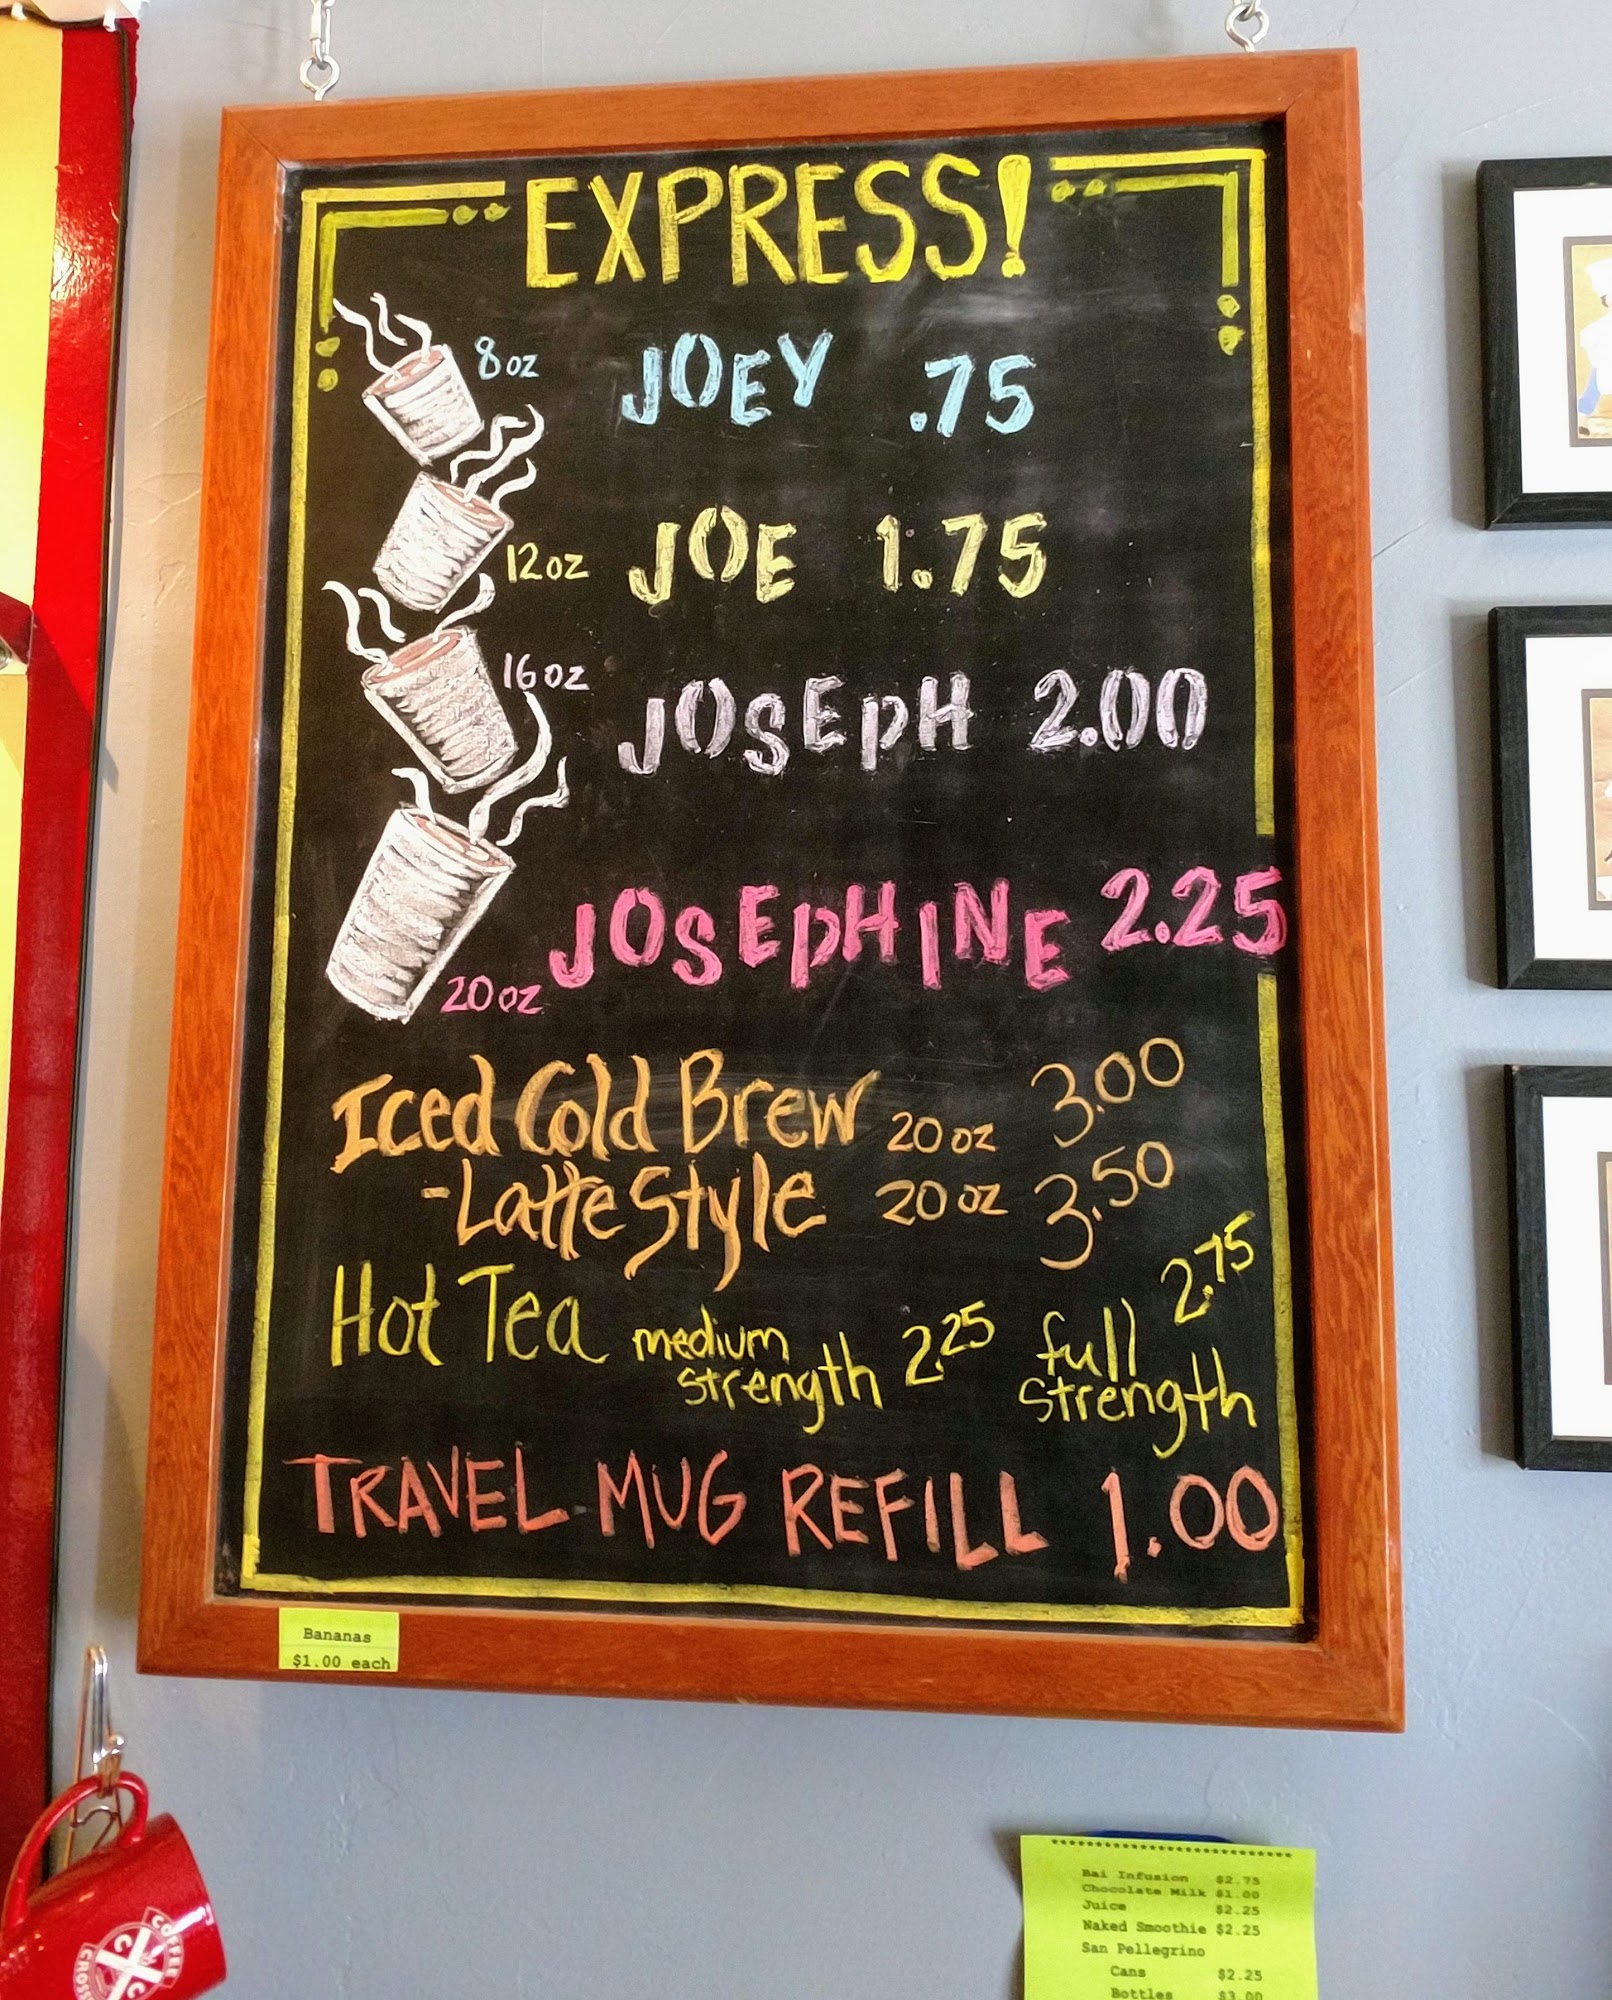 EXPRESS!
8oz JOEY .75
12oz JOE 1.75
16oz JOSEPH 2.00
20oz JOSEPHINE 2.25
Iced Cold Brew 20oz 3.00
-Latte Style 20oz 3.50
Hot Tea medium strength 2.25 full strength 2.75
TRAVEL MUG REFILL 1.00
Bananas
$1.00 each
**************************
Bai Infusion $2.75
Chocolate Milk $1.00
Juice $2.25
Naked Smoothie $2.25
San Pellegrino
Cans $2.25
Bottles $3.00
COFFEE
C C
CROSS